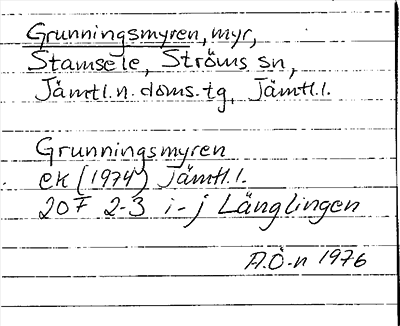 Grunningsmyren, myr,
Stamsele, Ströms sn,
Jämtl.n.doms.tg, Jämtl.l.
Grunningsmyren
ek (1974) Jämtl.l.
20F 2-3 i-j Länglingen
A.Ö-n 1976